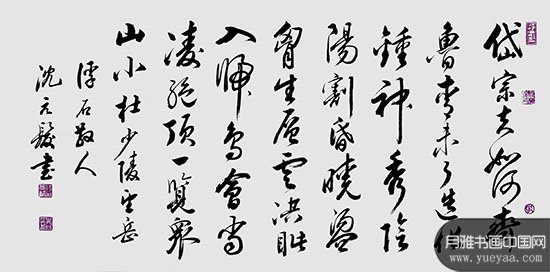 岱宗夫如何齊
魯青未了造化
鍾神秀陰
陽割昏曉盪
胷生層雲決眦
入歸鳥會當
凌絶頂一覽衆
山小杜少陵望岳
石散人
沈元發書
月雅书画中国网
www.yueyaa.com